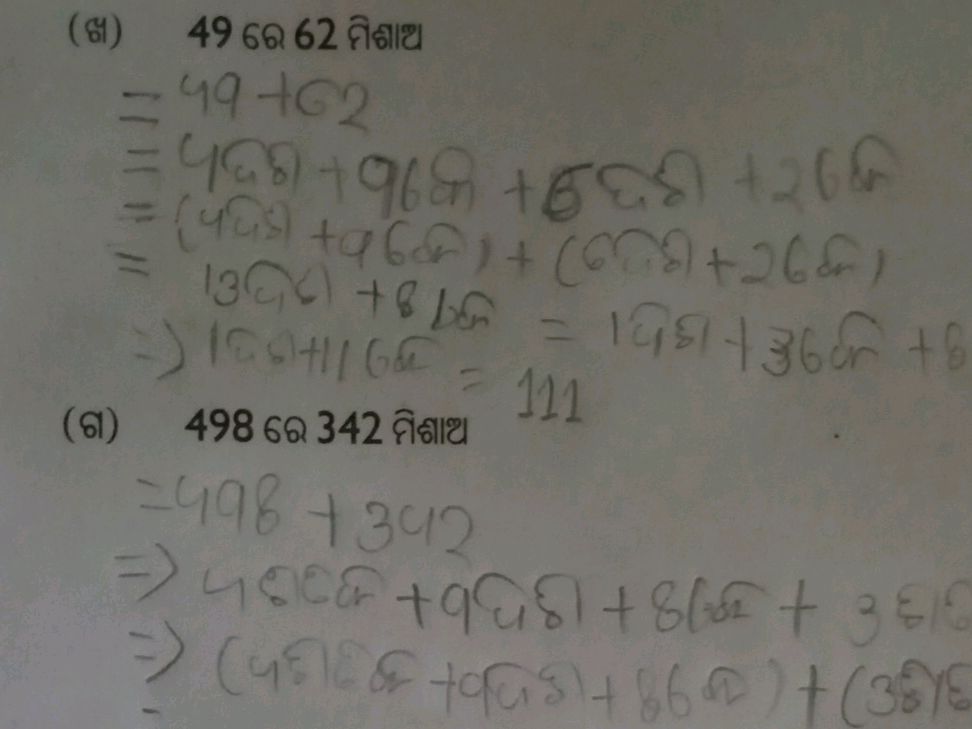 (ଖ) 49 ରେ 62 ମିଶାଅ
= 49 + 62
= 4ଦଶ + 9ଏକ + 6ଦଶ + 2ଏକ
= (4ଦଶ + 9ଏକ) + (6ଦଶ + 2ଏକ)
= 13ଦଶ + 8ଏକ = 1ଦଶ + 3ଏକ + 8
=> 1ଦଶ + 11ଏକ = 111
(ଗ) 498 ରେ 342 ମିଶାଅ
= 498 + 342
=> 4ଶତକ + 9ଦଶ + 8ଏକ + 3
=> (4ଶତକ + 9ଦଶ + 8ଏକ) + (3